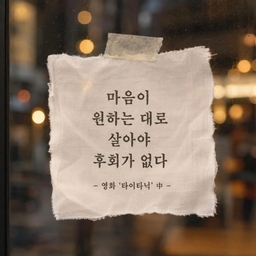 마음이
원하는 대로
살아야
후회가 없다
- 영화 '타이타닉' 中 -